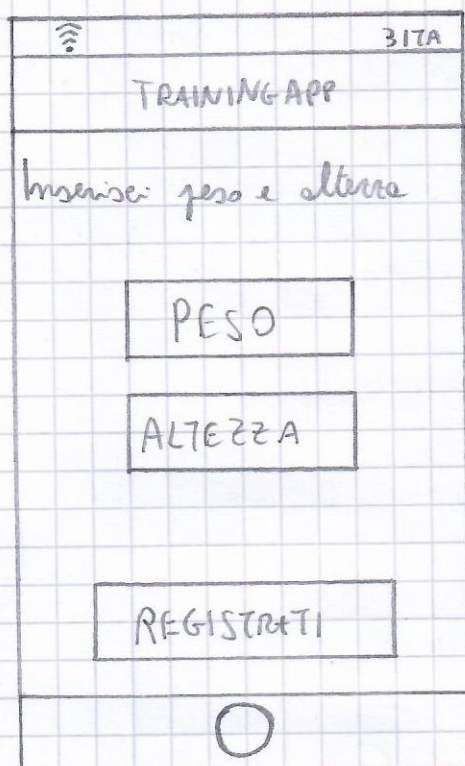 317A
TRAINING APP
Inserisci peso e altezza
PESO
ALTEZZA
REGISTRATI